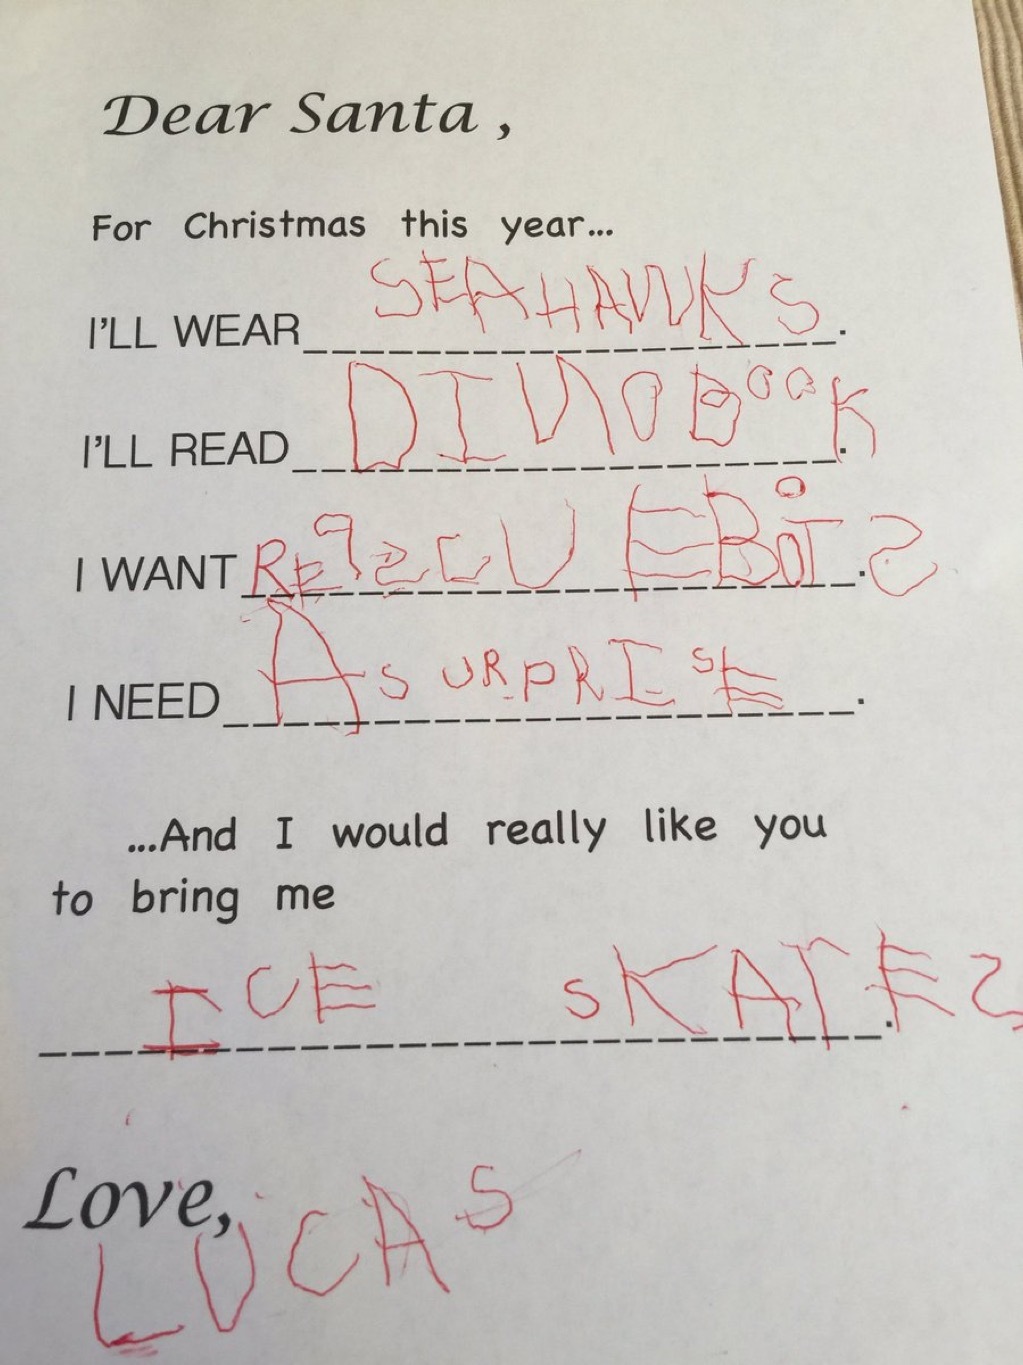 Dear Santa,
For Christmas this year...
I'LL WEAR SEAHAWKS.
I'LL READ DINOBOOK.
I WANT RESCUEBOTS.
I NEED A SURPRISE.
...And I would really like you
to bring me
ICE SKATES.
Love,
LUCAS